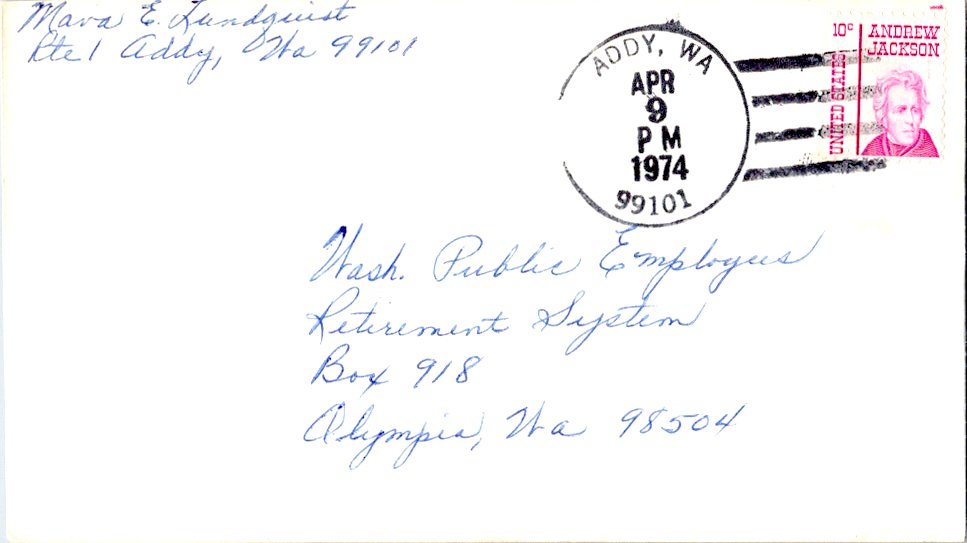 Mava E. Lundquist
Rte 1 Addy, Wa 99101
ADDY, WA
APR
9
PM
1974
99101
10c ANDREW
JACKSON
UNITED STATES
Wash. Public Employees
Retirement System
Box 918
Olympia, Wa 98504